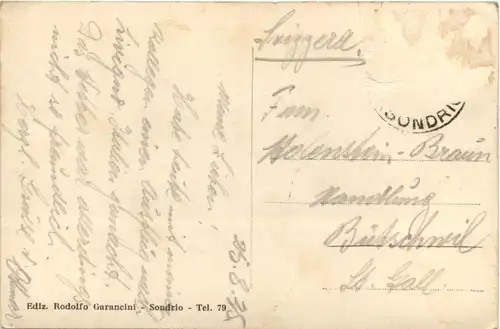 25.8.35
Meine Lieben!
Habe heute mit meinen
Kollegen einen Ausflug nach
Livigno, Italien gemacht.
Das Wetter war allerdings
nicht so freundlich.
Herzl. Grüsse
Svizzera.
SONDRIO
Fam.
Holenstein-Braun
Handlung
Bütschwil
St. Gall.
Ediz. Rodolfo Garancini - Sondrio - Tel. 79